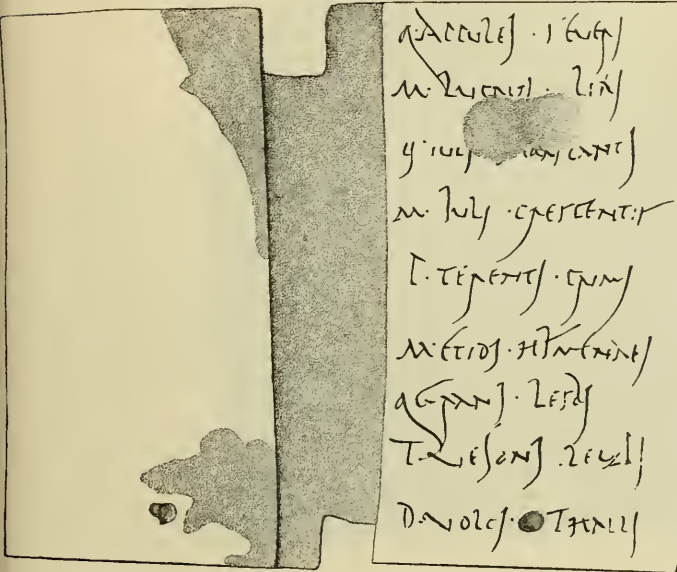 Q · APPULEI · SEVERI
M · LUCRETI · LERI
IULI
M · IULI · CRESCENTIS
P · TERENTI · PRIMI
M · EPIDI · HYMENAEI
Q GRANI · LESBI
T · VESONI
D · VOLCI · THALLI